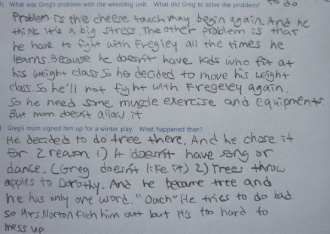 1) What was Greg's problem with the wrestling unit. What did Greg to solve the problem?
to do
Problem is the cheese touch may begin again. And he
think it's a big stress. The other problem is that
he have to fight with Fregley all the times he
learns. Because he doesn't have kids who fit at
his weight class. So he decided to move his weight
class. So he'll not fight with Fregeley again.
So he need some muscle exercise and equipments
But mom doesn't allow it
Greg's mom signed him up for a winter play. What happened then?
He decided to do tree there. And he chose it
for 2 reason 1) It doesn't have song or
dance. (Greg doesn't like it) 2) Trees throw
apples to Dorothy. And he became tree and
he has only one word. "Ouch" He tries to do bad
so Mrs. Norton kich him out but it's too hard to
mess up.